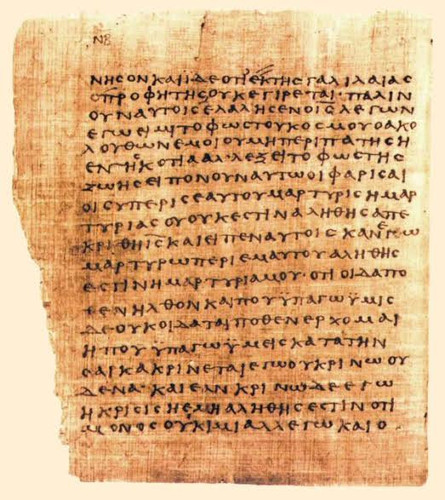 ΝΗ
ΝΗϹΟΝΚΑΙΙΔΕΟΤΙΕΚΤΗϹΓΑΛΙΛΑΙΑϹ
ΟΠΡΟΦΗΤΗϹΟΥΚΕΓΙΡΕΤΑΙ·ΠΑΛΙΝ
ΟΥΝΑΥΤΟΙϹΕΛΑΛΗϹΕΝΟΙϹΛΕΓΩΝ
ΕΓΩΕΙΜΙΤΟΦΩϹΤΟΥΚΟϹΜΟΥΟΑΚΟ
ΛΟΥΘΩΝΕΜΟΙΟΥΜΗΠΕΡΙΠΑΤΗϹΗ
ΕΝΤΗϹΚΟΤΙΑΑΛΛΕΞΕΙΤΟΦΩϹΤΗϹ
ΖΩΗϹΕΙΠΟΝΟΥΝΑΥΤΩΟΙΦΑΡΙϹΑΙ
ΟΙϹΥΠΕΡΙϹΕΑΥΤΟΥΜΑΡΤΥΡΙϹΗΜΑΡ
ΤΥΡΙΑϹΟΥΟΥΚΕϹΤΙΝΑΛΗΘΗϹΑΠΕ
ΚΡΙΘΗΙϹΚΑΙΕΙΠΕΝΑΥΤΟΙϹΚΑΝΕΓΩ
ΜΑΡΤΥΡΩΠΕΡΙΕΜΑΥΤΟΥΑΛΗΘΗϹ
ΕϹΤΙΝΗΜΑΡΤΥΡΙΑΜΟΥ·ΟΤΙΟΙΔΑΠΟ
ΘΕΝΗΛΘΟΝΚΑΙΠΟΥΫΠΑΓΩΫΜΙϹ
ΔΕΟΥΚΟΙΔΑΤΑΙΠΟΘΕΝΕΡΧΟΜΑΙ
ΗΠΟΥΫΠΑΓΩΫΜΕΙϹΚΑΤΑΤΗΝ
ϹΑΙΚΑΚΡΙΝΕΤΑΙΕΓΩΟΥΚΡΙΝΩΟΥ
ΔΕΝΑ·ΚΑΙΕΑΝΚΡΙΝΩΔΕΕΓΩ
ΗΚΡΙϹΙϹΗΕΜΗΑΛΗΘΗϹΕϹΤΙΝΟΤΙ
ΜΟΝΟϹΟΥΚΙΜΙΑΛΛΕΓΩΚΑΙΟ